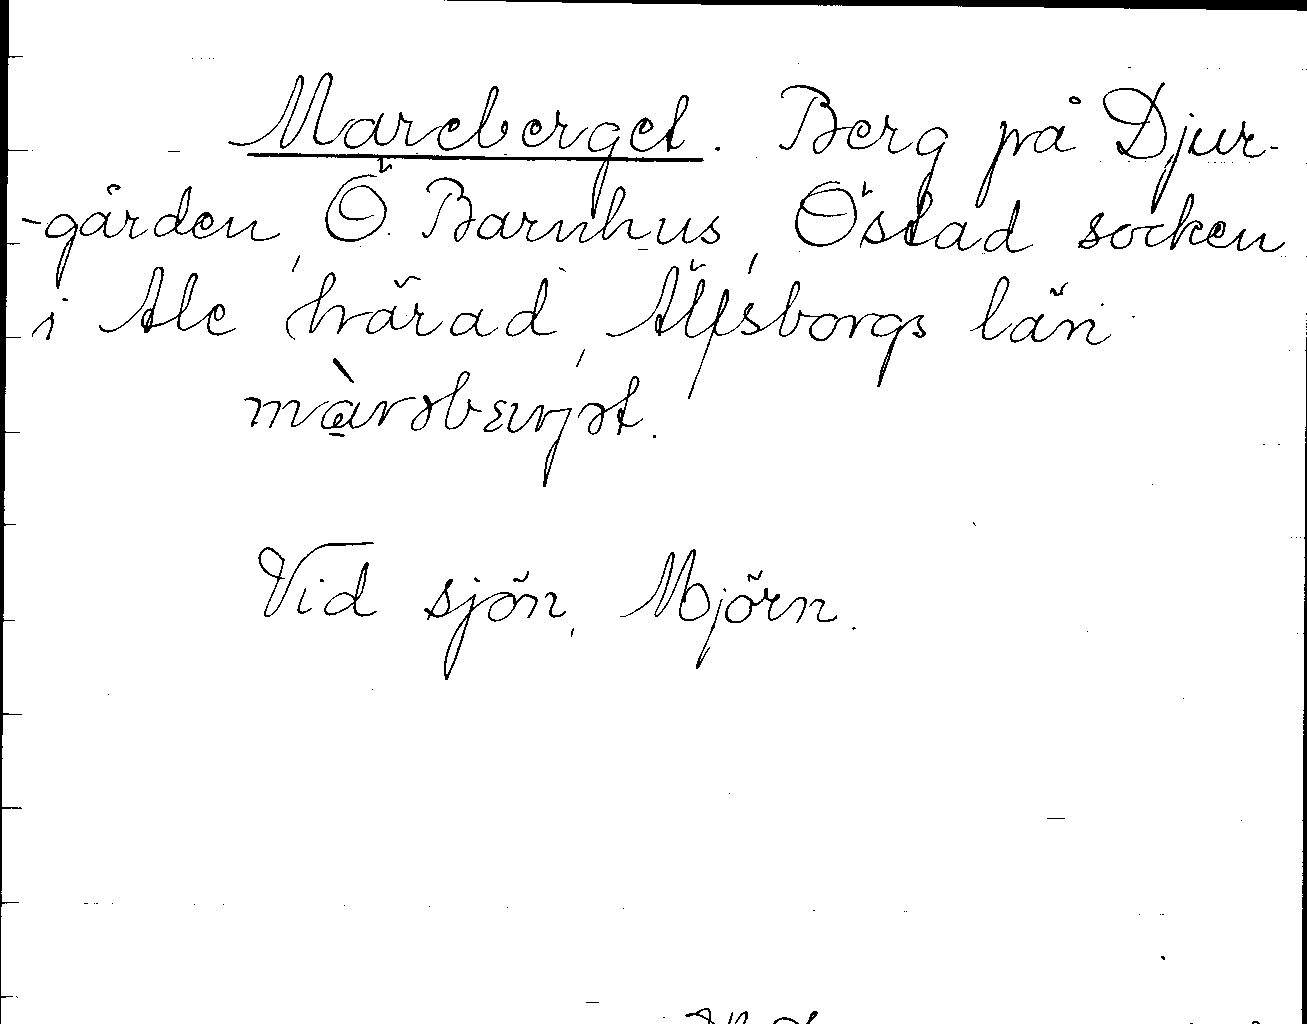 Mareberget. Berg på Djur-
-gården, Ö. Barnhus, Östad socken
i Ale härad, Älfsborgs län
màrəbærjət.
Vid sjön, Mjörn.